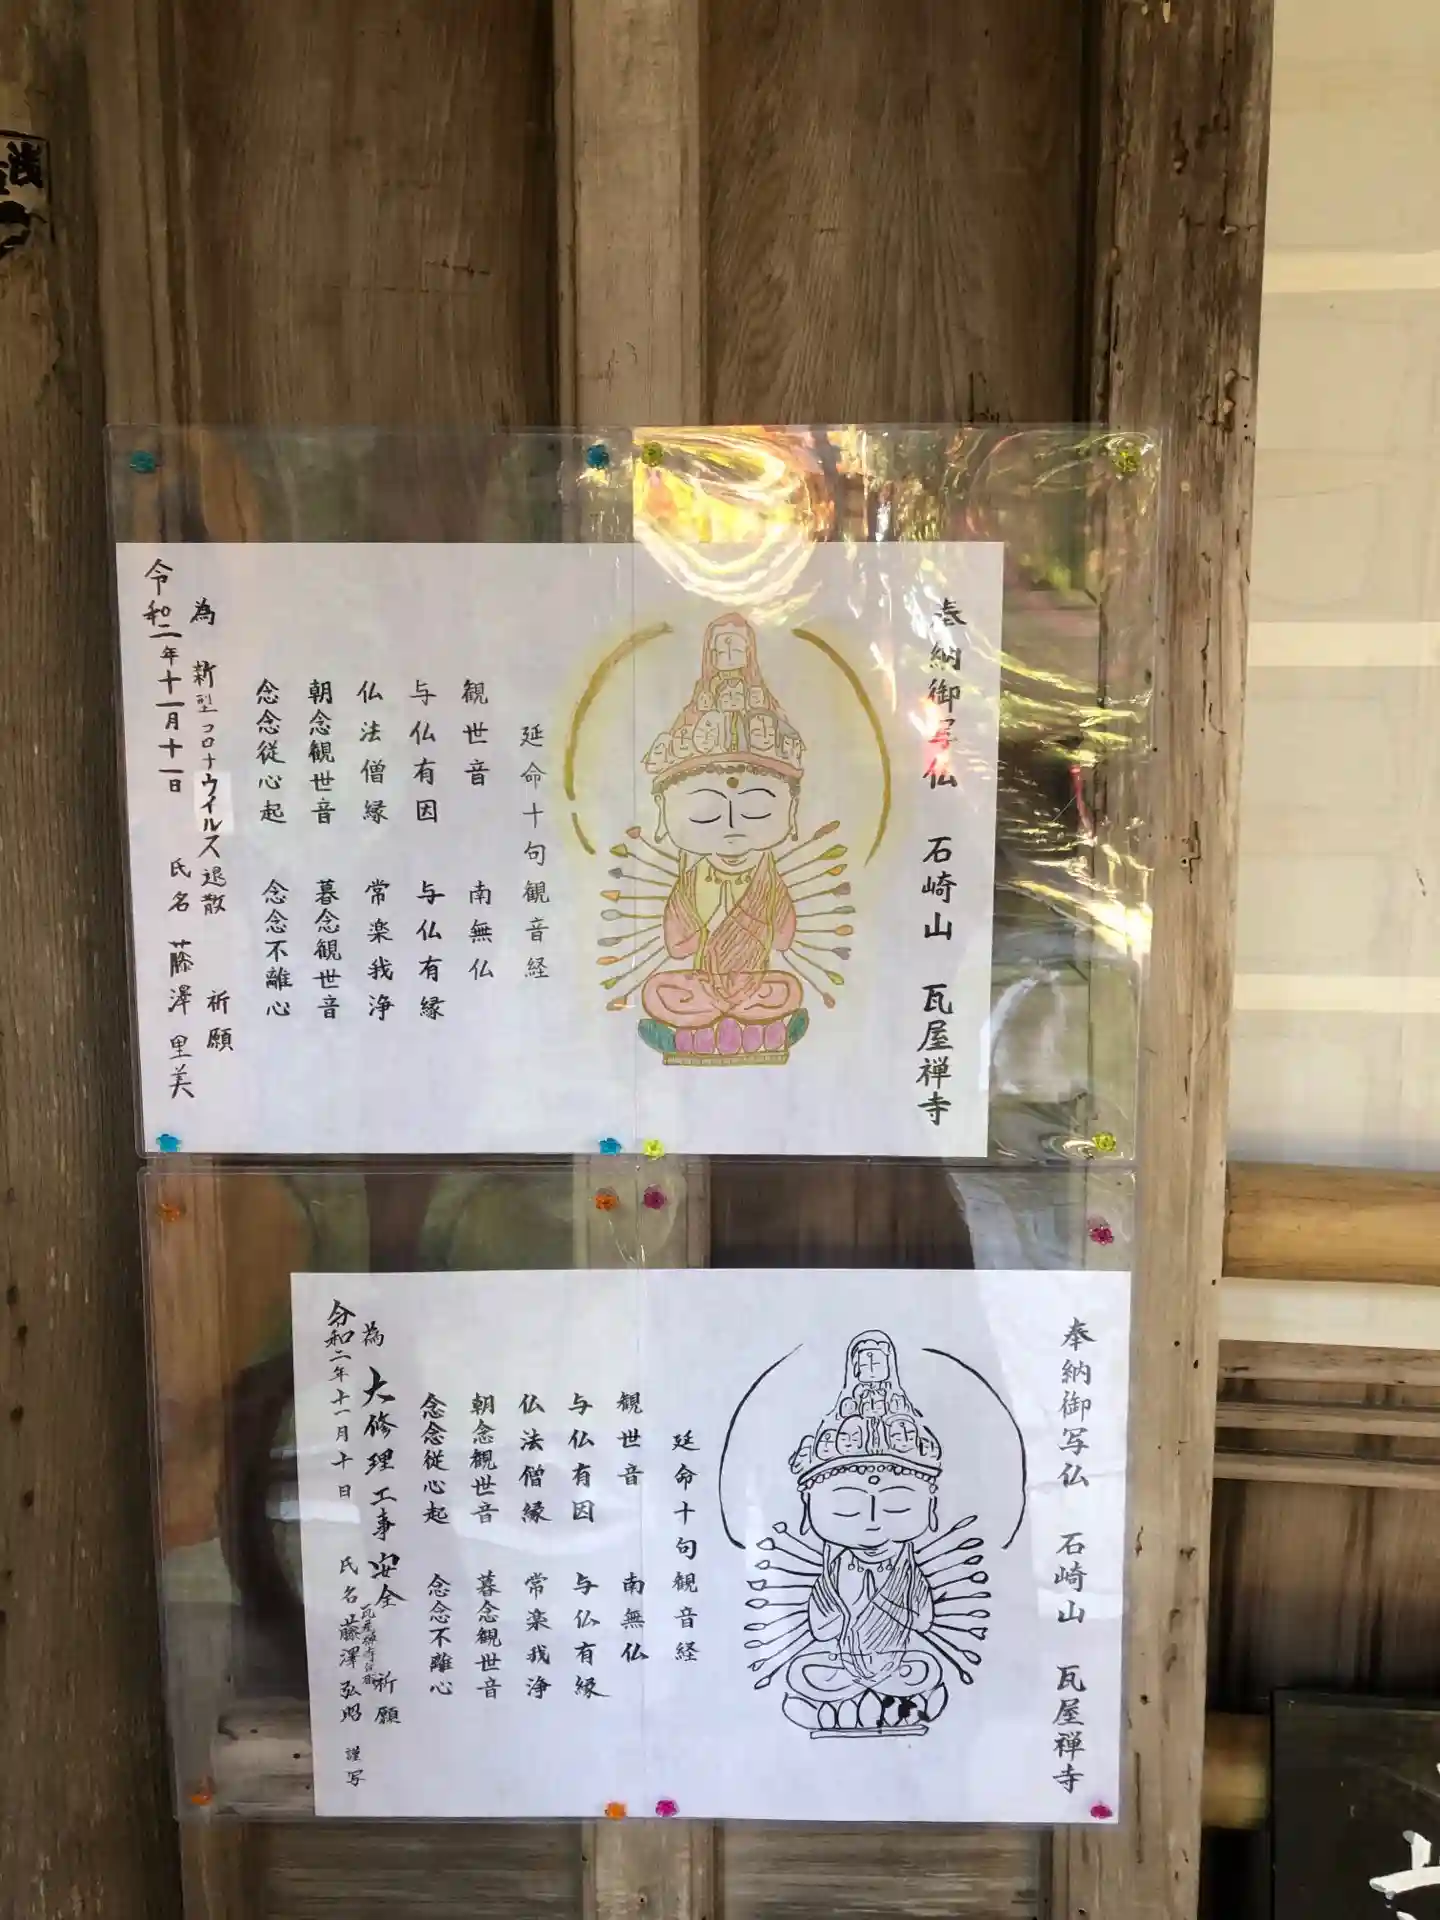 奉納御写仏 石崎山 瓦屋禅寺
延命十句観音経
観世音 南無仏
与仏有因 与仏有縁
仏法僧縁 常楽我浄
朝念観世音 暮念観世音
念念従心起 念念不離心
為 新型コロナウイルス退散 祈願
令和二年十一月十一日 氏名 藤澤里美
奉納御写仏 石崎山 瓦屋禅寺
延命十句観音経
観世音 南無仏
与仏有因 与仏有縁
仏法僧縁 常楽我浄
朝念観世音 暮念観世音
念念従心起 念念不離心
為 大修理工事安全 祈願
令和二年十一月十日 氏名 藤澤弘昭 謹写
浅